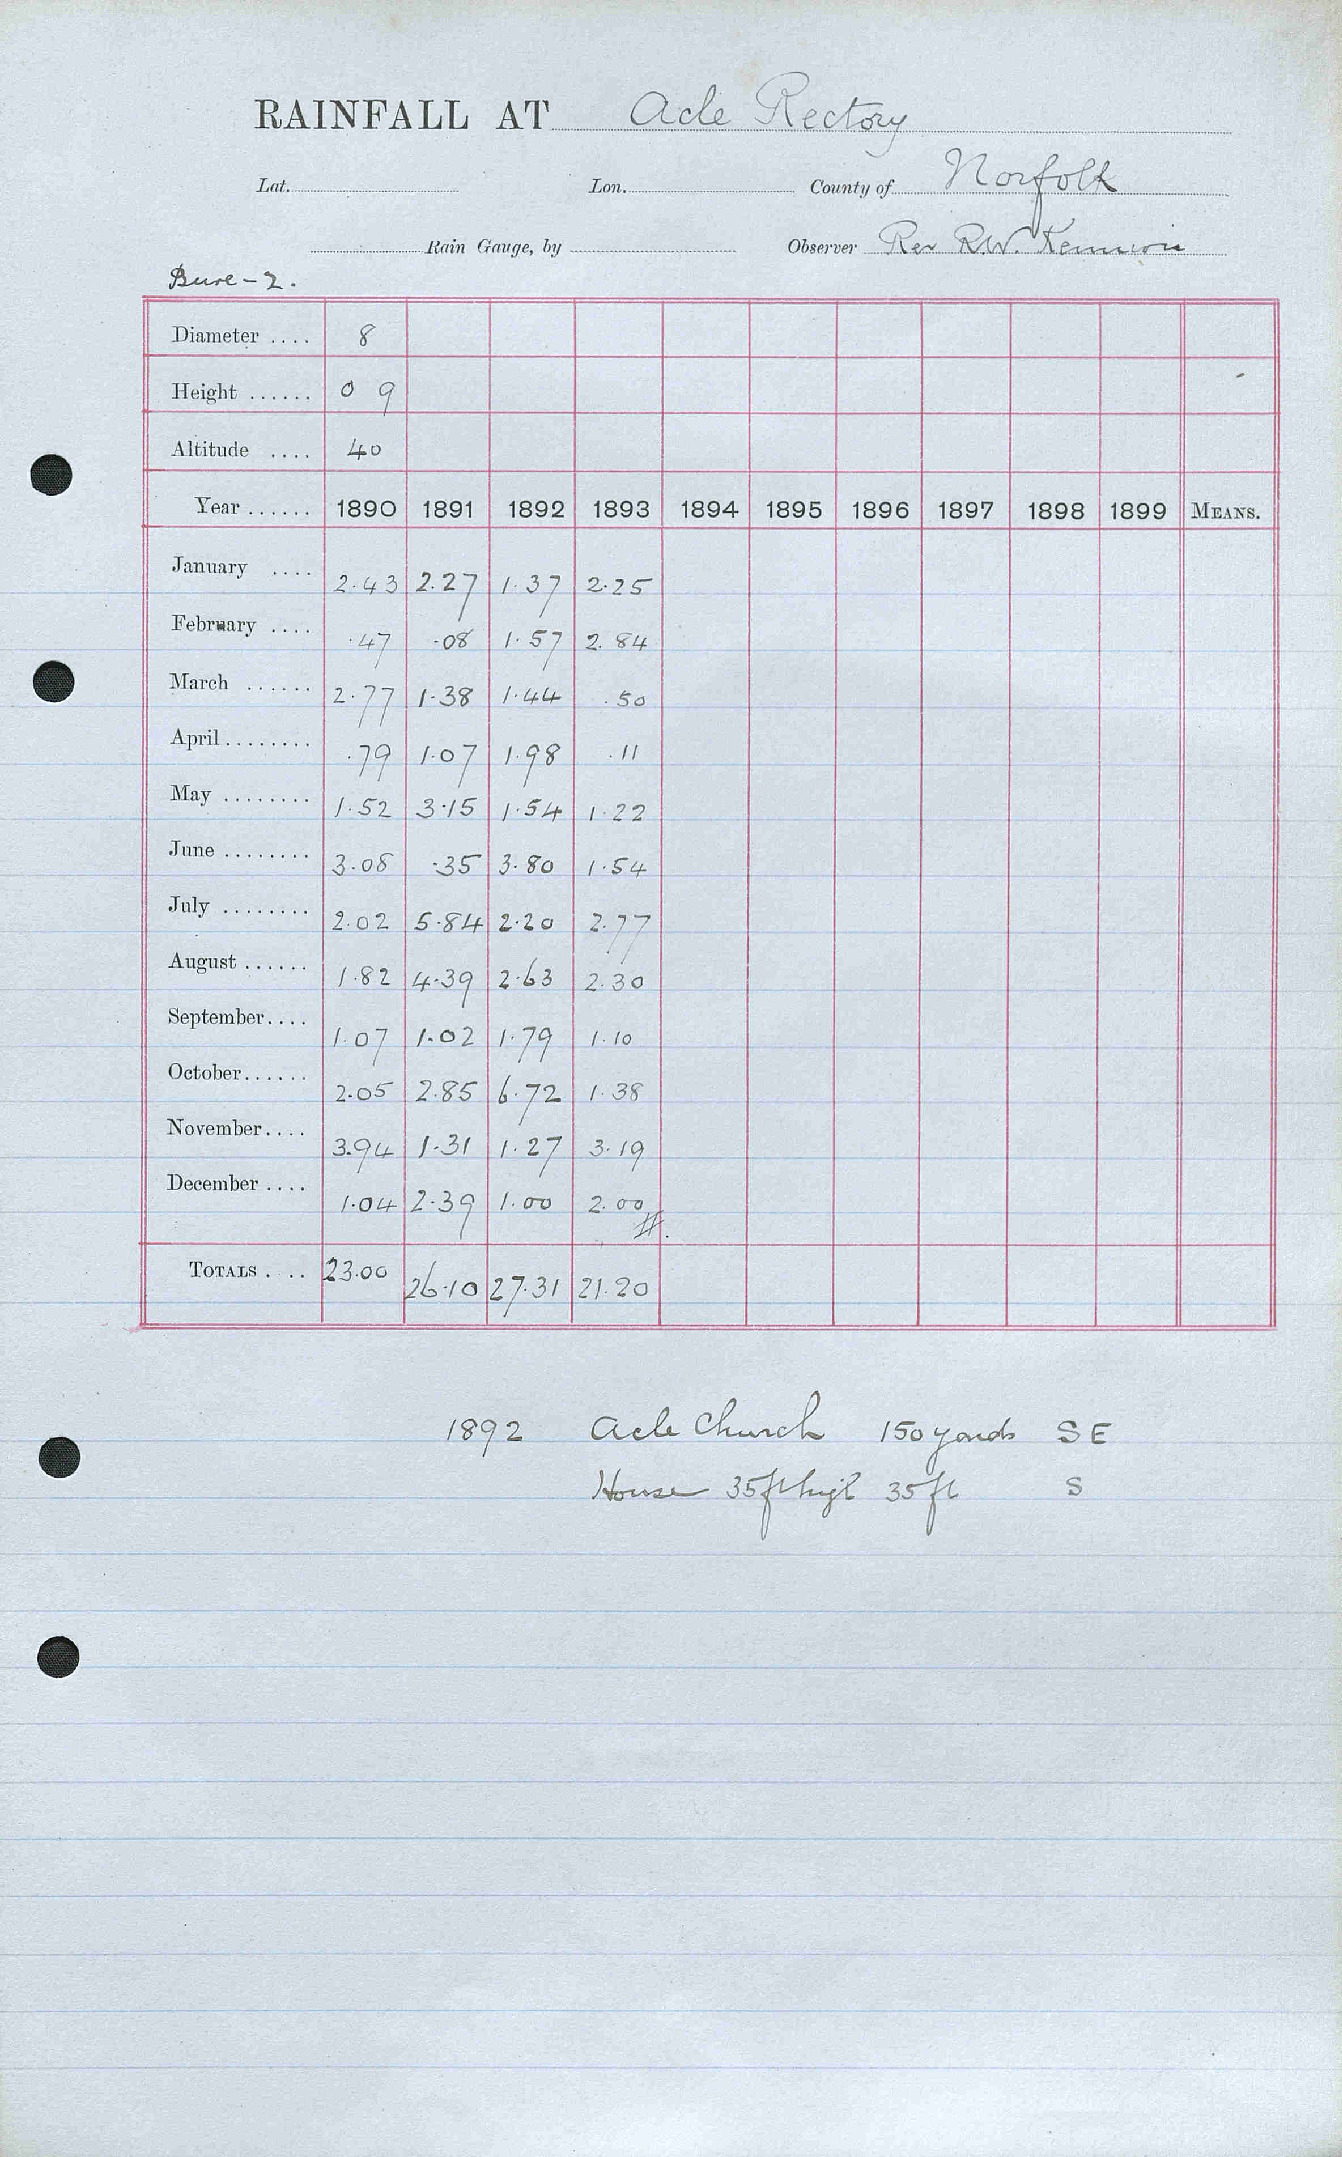 RAINFALL AT Acle Rectory
Lat. Lon. County of Norfolk
Rain Gauge, by Observer Rev R.W.
Bure - 2.
Diameter .... 8
Height ...... 0 9
Altitude .... 40
Year ...... 1890 1891 1892 1893 1894 1895 1896 1897 1898 1899 MEANS.
January .... 2.43 2.27 1.37 2.25
February .... .47 .08 1.57 2.84
March ...... 2.77 1.38 1.44 .50
April........ .79 1.07 1.98 .11
May ........ 1.52 3.15 1.54 1.22
June ........ 3.08 .35 3.80 1.54
July ........ 2.02 5.84 2.20 2.77
August ...... 1.82 4.39 2.63 2.30
September.... 1.07 1.02 1.79 1.10
October...... 2.05 2.85 6.72 1.38
November.... 3.94 1.31 1.27 3.19
December .... 1.04 2.39 1.00 2.00
#.
TOTALS . .. 23.00 26.10 27.31 21.20
1892 Acle Church 150 yards SE
House 35 ft high 35 ft S